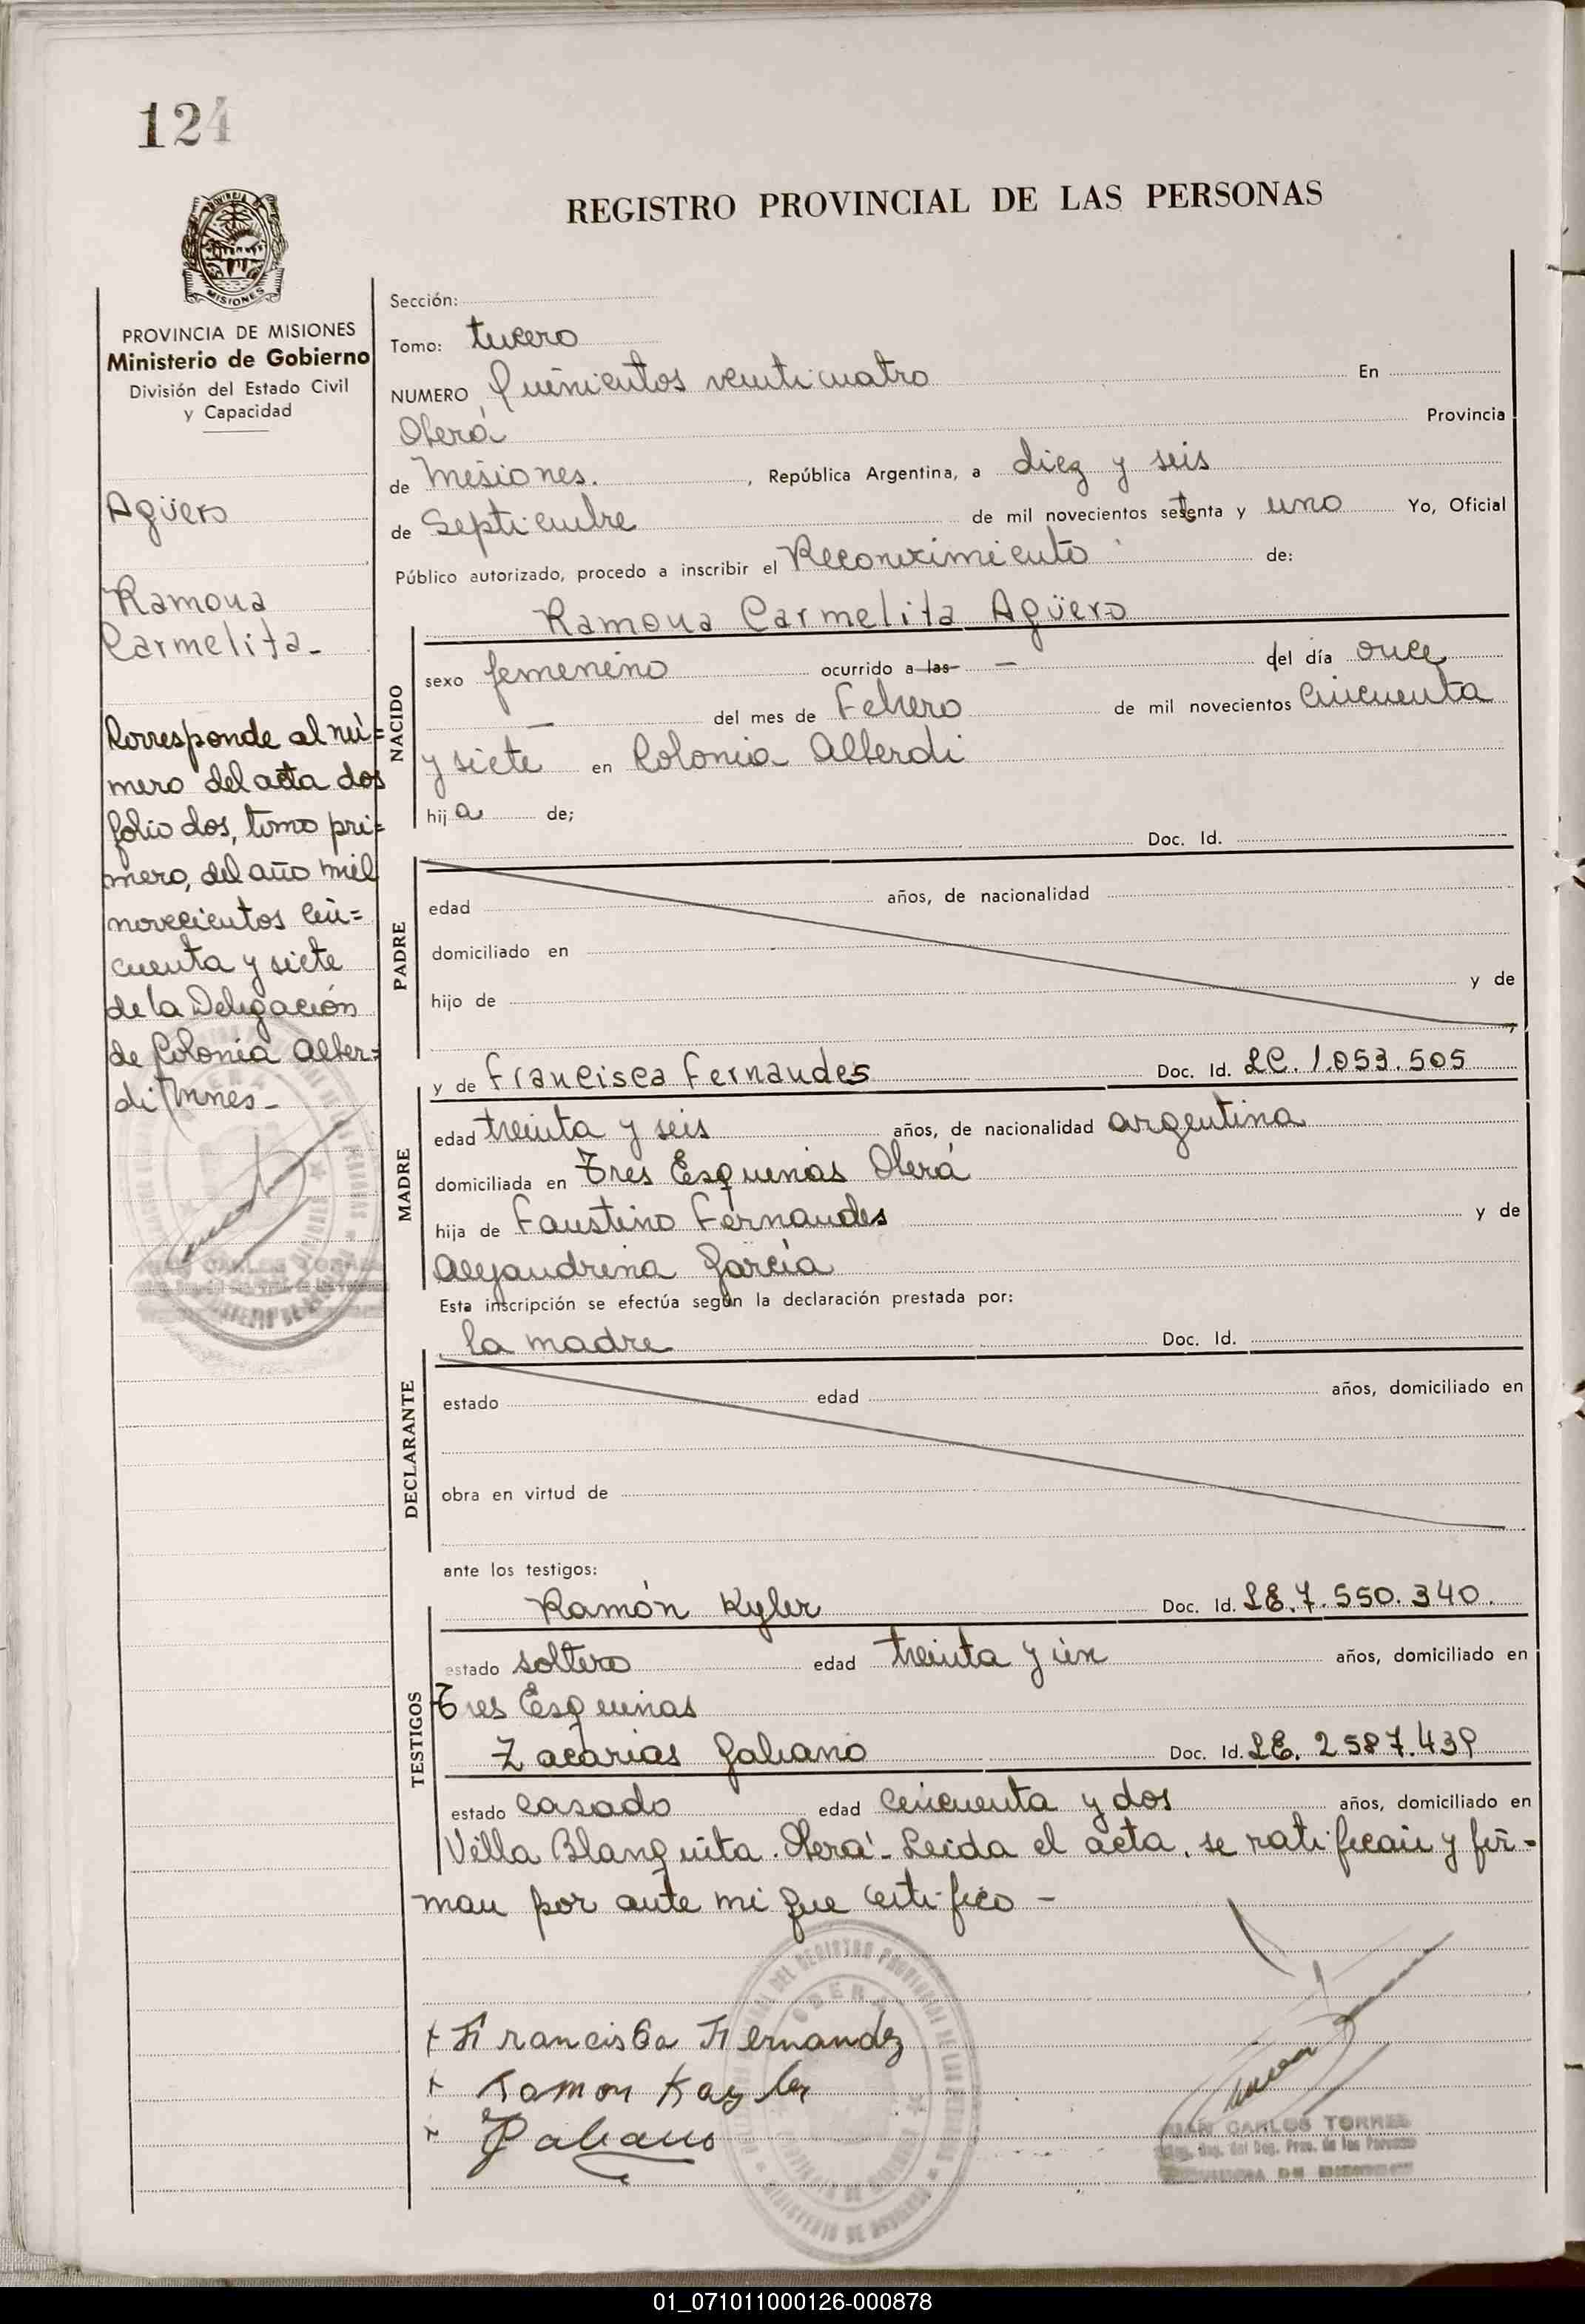 124
REGISTRO PROVINCIAL DE LAS PERSONAS
PROVINCIA DE MISIONES
Ministerio de Gobierno
División del Estado Civil
y Capacidad
Agüero
Ramona
Carmelita-
Corresponde al nú=
mero del acta dos
folio dos, tomo pri=
mero, del año mil
novecientos cin=
cuenta y siete
de la Delegación
de Colonia Alber=
di Mnes-
Sección:
Tomo: tercero
NUMERO Quinientos veinticuatro En
Oberá Provincia
de Misiones. , República Argentina, a diez y seis
de Septiembre de mil novecientos setenta y uno Yo, Oficial
Público autorizado, procedo a inscribir el Reconocimiento de:
Ramona Carmelita Agüero
NACIDO
sexo femenino ocurrido a las — del día once
— del mes de Febrero de mil novecientos cincuenta
y siete en Colonia Alberdi
hija de;
Doc. Id.
PADRE
edad años, de nacionalidad
domiciliado en
hijo de y de
y de Francisca Fernandes Doc. Id. LC. 1.053.505
MADRE
edad treinta y seis años, de nacionalidad argentina
domiciliada en Tres Esquinas Oberá
hija de Faustino Fernandes y de
Alejandrina García
Esta inscripción se efectúa según la declaración prestada por:
la madre Doc. Id.
DECLARANTE
estado edad años, domiciliado en
obra en virtud de
ante los testigos:
Ramón Kyler Doc. Id. LE. 7.550.340.
TESTIGOS
estado soltero edad treinta y un años, domiciliado en
Tres Esquinas
Zacarias Galiano Doc. Id. LE. 2587.439
estado casado edad cincuenta y dos años, domiciliado en
Villa Blanquita. Oberá- Leida el acta, se ratifican y fir=
man por ante mi que certifico -
+ Francisca Fernandez
+ Ramon Kayler
+ Galiano
JUAN CARLOS TORRES
01_071011000126-000878